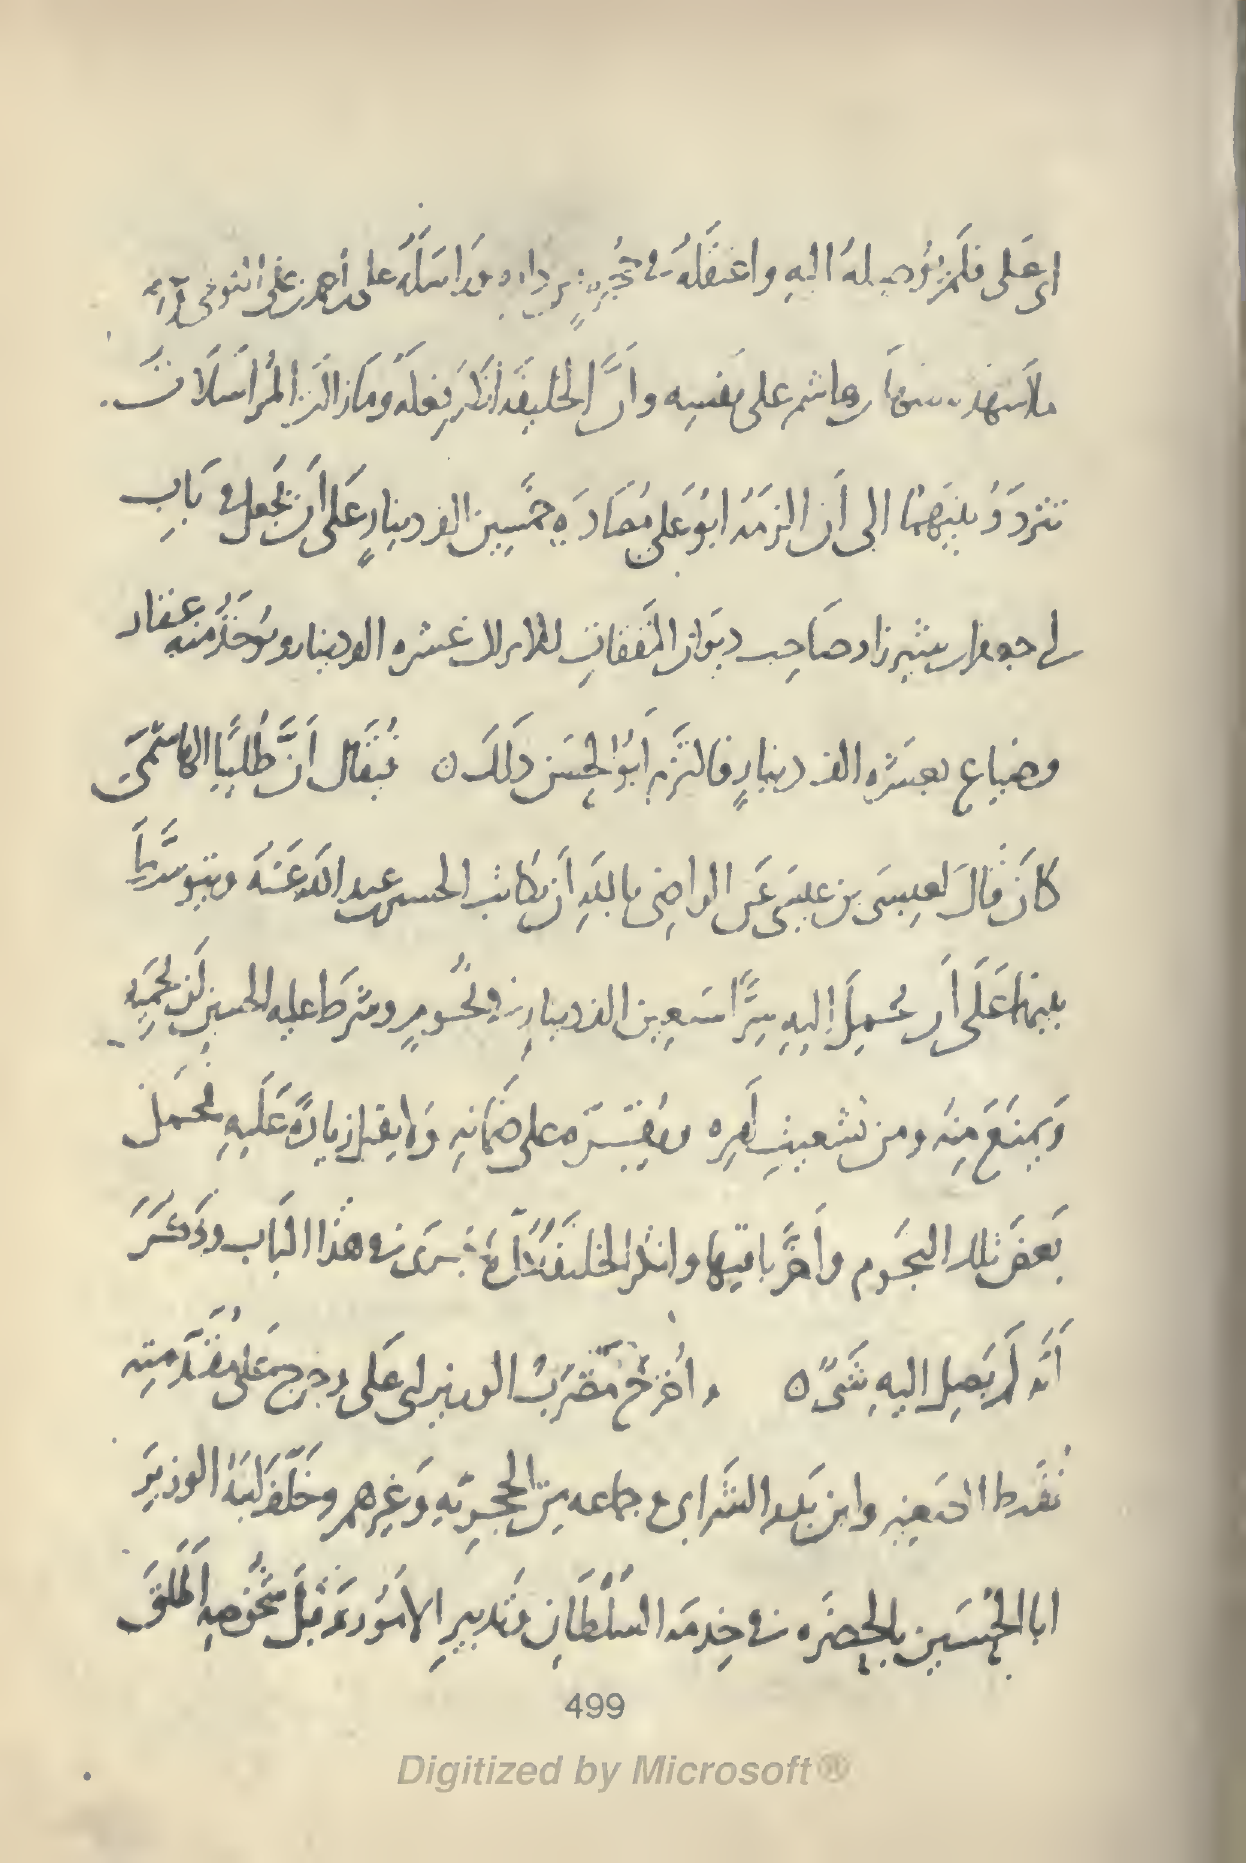 ابي علي فلم يوصله اليه واعتقله في حجرة من داره وراسله على احمد بن علي النوبختي
على نفسه وأنّ الخليفة انكر فعله وما زالت المراسلات
تتردّد بينهما الى أن الزمه ابو علي مصادرة خمسين الف دينار على أن تجعل في باب
صاحب ديوان النفقات عشره الف دينار ويؤخذ منه عقار
وضياع بعشره الف دينار فالتزم ابو الحسن ذلك ٥ فيقال انّ طليبا الهاشمي
كان قال لعيسى بن عيسى عن الراضي بالله أن يكاتب الحسن عبد الله عنه ويتوسّط
بينهما على أن يحمل اليه سرّا سبعين الف دينار في نجوم وشرط عليه الحسين أن يحميه
ويمنع منه ومن تشعيث أمره ويقرّه على ضمانه ولا يقبل زيادة عليه فحمل
بعض تلك النجوم وأخّر باقيها وانكر الخليفة جرى في هذا الباب وذكر
أنّه لم يصل اليه شيء ٥ وأخرج مضرب الوزير ابي علي وخرج على مقدّمته
وابن بدر الشرابي وجماعه من الحجرية وغيرهم وخلّف ابنه الوزير
ابا الحسين بالحضره في خدمة السلطان وتدبير الامور وقبل شخوصه أطلق
499
Digitized by Microsoft®